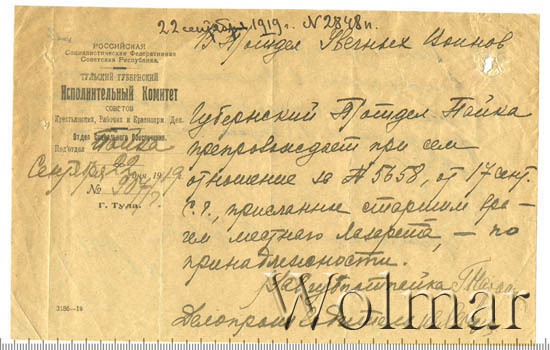 22 сентября 1919 г. № 2848 п.
В П/отдел Увечных Воинов
РОССИЙСКАЯ
Социалистическая Федеративная
Советская Республика.
ТУЛЬСКИЙ ГУБЕРНСКИЙ
Исполнительный Комитет
СОВЕТОВ
Крестьянских, Рабочих и Красноарм. Деп.
Отдел Социального Обеспечения.
Под'отдел Пайка
Сентября 22 дня, 1919
№
Г. Тула.
Губернский П/отдел Пайка
препровождает при сем
отношение за № 5658, от 17 сент.
С. г., присланное старшим вра-
чем местного Лазарета, — по
принадлежности.
Зав. Губп/отпайка
Делопроизводитель
3186—19
Wolmar